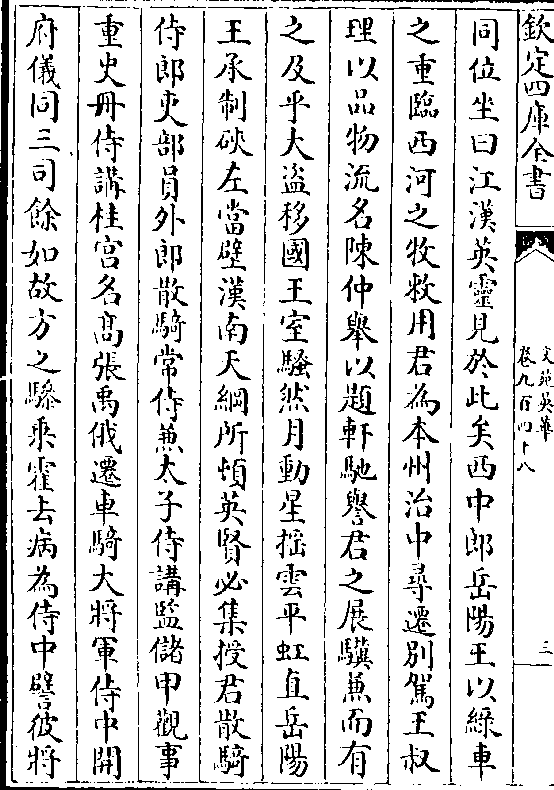 欽定四庫全書
文苑英華
卷九百四十八
三
同位坐曰江漢英靈見於此矣西中郎岳陽王以綠車
之重臨西河之牧敕用君為本州治中尋遷別駕王叔
理以品物流名陳仲舉以題軒馳譽君之展驥兼而有
之及乎大盜移國王室騷然月動星搖雲平虹直岳陽
王承制硤左當壁漢南天綱所頓英賢必集授君散騎
侍郎吏部員外郎散騎常侍兼太子侍講監儲甲觀事
重史丹侍講桂宮名髙張禹俄遷車騎大將軍侍中開
府儀同三司餘如故方之驂乘霍去病為侍中譬彼將